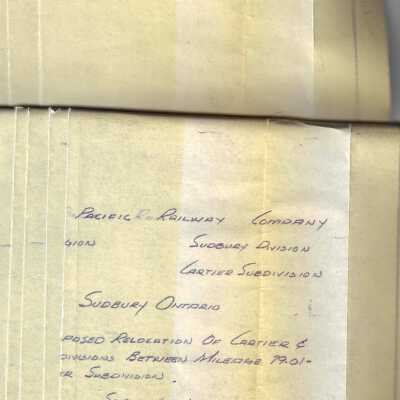 Pacific Railway Company
gion Sudbury Division
Cartier Subdivision
Sudbury Ontario
posed Relocation Of Cartier &
divisions Between Mileage 79.01-
er Subdivision.